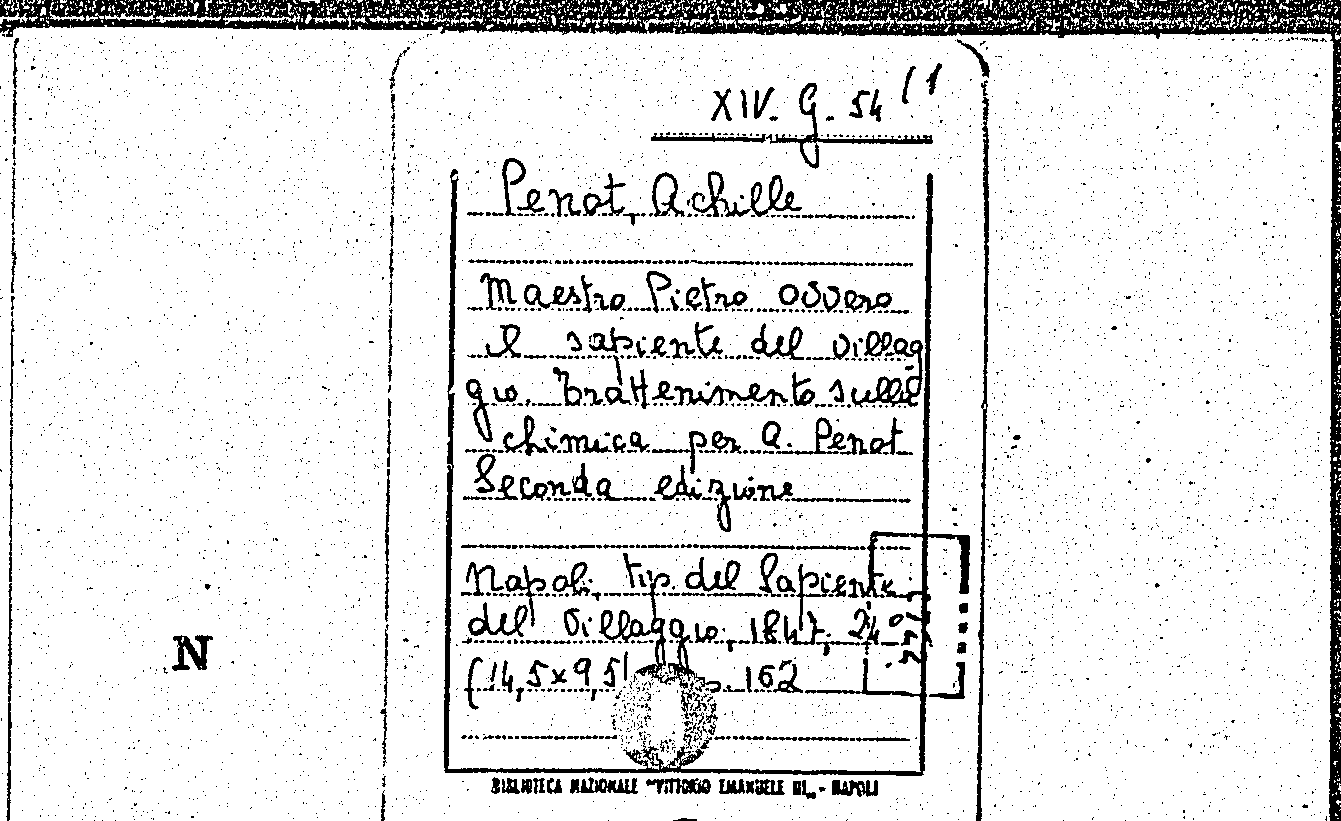 XIV. G. 54 (1
Penot, Achille
Maestro Pietro ovvero
il sapiente del villag
gio. Trattenimento sulla
chimica per A. Penot
Seconda edizione
Napoli, tip. del Sapiente
del Villaggio, 1847, 24°
(14,5x9,5) p. 162
N
BIBLIOTECA NAZIONALE "VITTORIO EMANUELE III" - NAPOLI